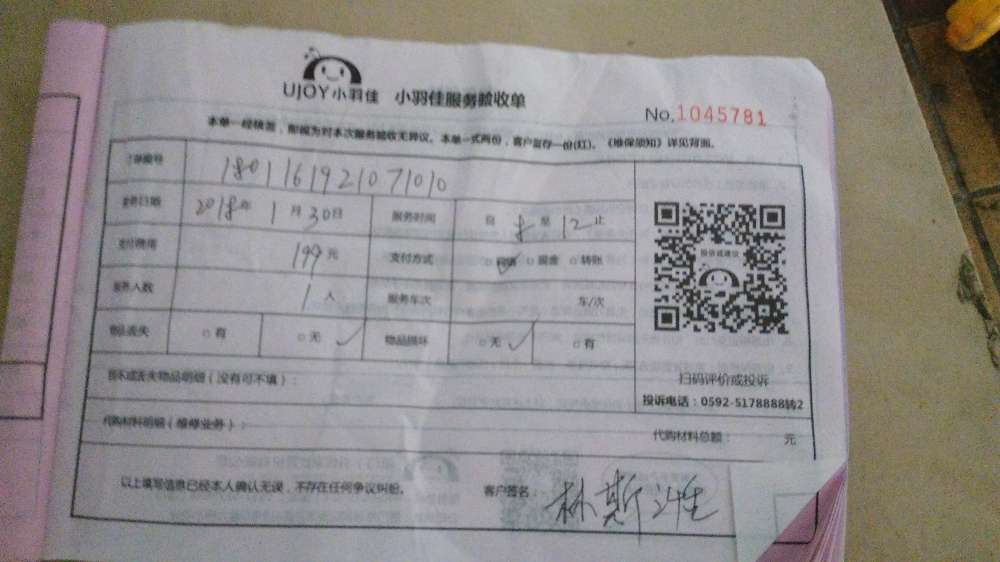 UJOY小羽佳 小羽佳服务验收单
No.1045781
本单一经核签，即视为对本次服务验收无异议。本单一式两份，客户留存一份(红)。《维保须知》详见背面。
单编号 1801161921071010
务日期 2018年1月30日 服务时间 自 8 至 12 止
199元 支付方式 现金 转账
务人数 1人 服务车次 车/次
品丢失 有 无 ✓ 物品损坏 无 ✓ 有
坏或丢失物品明细（没有可不填）：
扫码评价或投诉
投诉电话：0592-5178888转2
代购材料明细（维修业务）： 代购材料总额： 元
以上填写信息已经本人确认无误，不存在任何争议纠纷。 客户签名： 林斯维